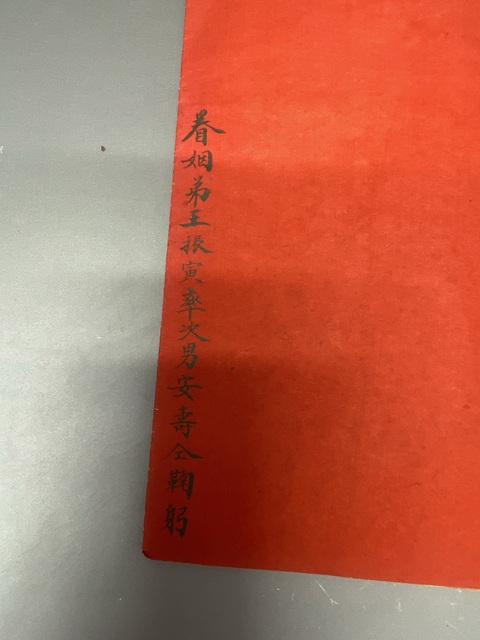 眷姻弟王振寅率次男安壽仝鞠躬